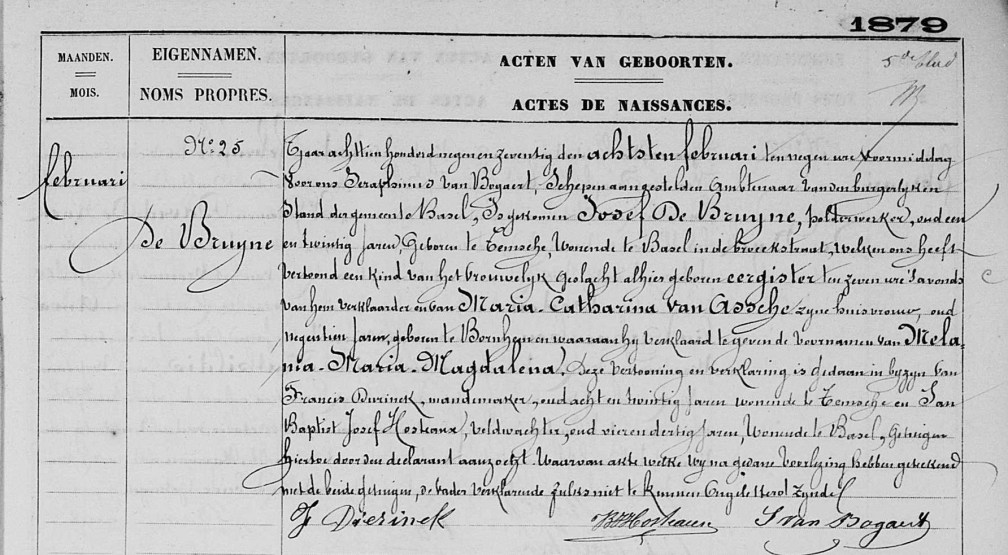 1879
MAANDEN.
MOIS.
EIGENNAMEN.
NOMS PROPRES.
ACTEN VAN GEBOORTEN.
ACTES DE NAISSANCES.
5e blad
februari
No 25
De Bruyne
T'jaar achttien honderd negen en zeventig den achtsten februari ten negen ure voormiddag
Voor ons Seraphinus van Bogaert, Schepen aangestelden Ambtenaar van den burgerlyken
Stand der gemeente Basel, Is gekomen Josef De Bruyne, polderwerker, oud een
en twintig Jaren, Geboren te Temsche, Wonende te Basel in de broeckstraat, Welken ons heeft
Vertoond een kind van het Vrouwelyk Geslacht alhier geboren eergister ten zeven ure 's avonds
van hem Verklaarder en van Maria-Catharina van Assche zyne huisvrouw, oud
negentien Jaren, geboren te Bornhem en waaraan hy verklaard te geven de voornamen van Mela-
nia-Maria-Magdalena, Deze Vertooning en verklaring is gedaan in byzyn van
Francis Dierinck, mandemaker, oud acht en twintig Jaren wonende te Temsche en Jan
Baptist Josef Hosteaux, Veldwachter, oud vier en dertig Jaren, Wonende te Basel, Getuigen
hiertoe door den declarant aanzocht. Waarvan akte welke wy na gedane Voorlezing hebben geteekend
met de beide getuigen, de vader verklarende zulks niet te kunnen Ongeletterd zynde
F Dierinck
BJHosteaux
S van Bogaert